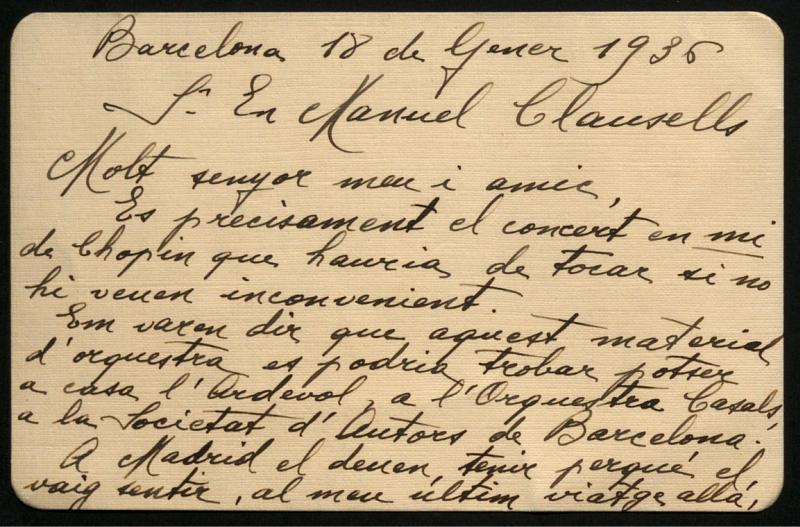 Barcelona 18 de Gener 1936
Sr. En Manuel Clausells
Molt senyor meu i amic,
Es precisament el concert en mi
de Chopin que hauria de tocar si no
hi veuen inconvenient.
Em varen dir que aquest material
d'orquestra es podria trobar potser
a casa l'Ardevol, a l'Orquestra Casals,
a la Societat d'Autors de Barcelona.
A Madrid el deuen tenir perqué el
vaig sentir, al meu últim viatge allá,